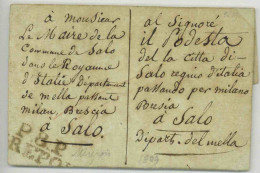 à monsieur
Le Maire de la
Commune de Salo
dans le Royaume
d'Italie Département
de mella passant
milan, Brescia
à Salo.
al Signore
il Podesta
del la citta di
Salo regno d'italia
passando per milano
Bresia
à Salo
Dipart. del mella
P. P.